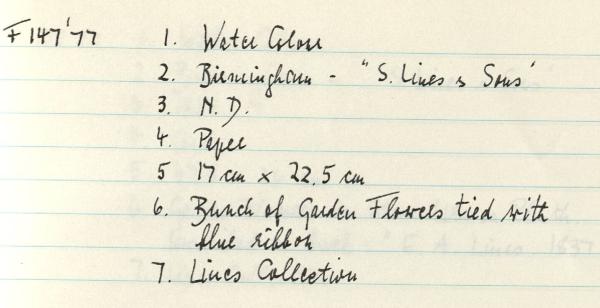 F 147'77 1. Water Colour
2. Birmingham - "S. Lines & Sons"
3. N.D.
4. Paper
5 17 cm x 22.5 cm
6. Bunch of Garden Flowers tied with
blue ribbon
7. Lines Collection